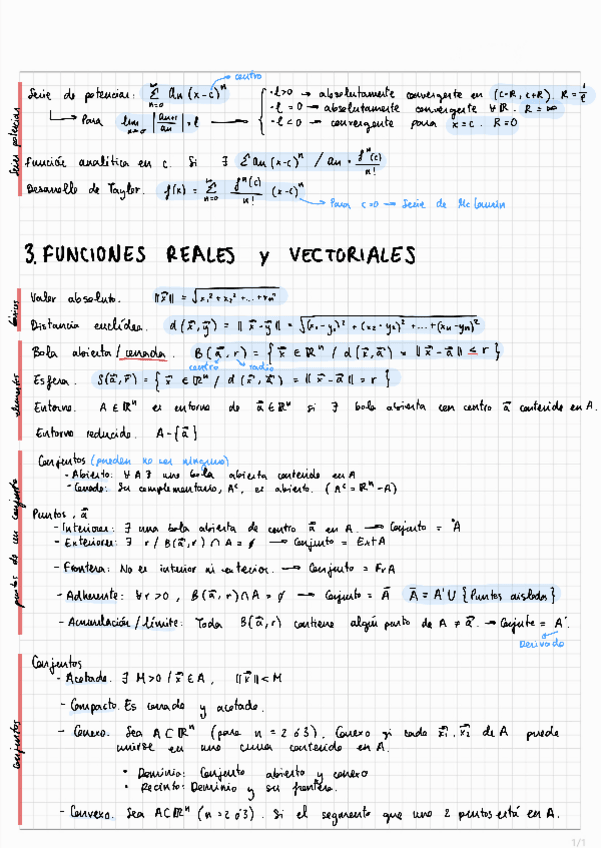 centro
Serie de potencias: ∞ Σ n=0 an (x-c)^n
- l>0 → absolutamente convergente en (c-R, c+R). R = 1/l
Para lim |an+1/an| = l → - l = 0 → absolutamente convergente ∀R. R = ∞
- l < 0 → convergente para x=c. R=0
Series potencias
Función analítica en c. Si ∃ Σ an (x-c)^n / an = f^n(c)/n!
Desarrollo de Taylor. f(x) = ∞ Σ n=0 f^n(c)/n! (x-c)^n
Para c=0 → Serie de Mc Laurin
3. FUNCIONES REALES y VECTORIALES
Valor absoluto. ||x⃗|| = √x₁²+x₂²+...+xn²
Distancia euclídea. d(x⃗,y⃗) = ||x⃗-y⃗|| = √(x₁-y₁)² + (x₂-y₂)² +...+(xn-yn)²
Bola abierta/cerrada. B(a⃗,r) = {x⃗ ∈ ℝ^n / d(x⃗,a⃗) = ||x⃗-a⃗|| ≤ r}
centro radio
Esfera. S(a⃗,r) = {x⃗ ∈ ℝ^n / d(x⃗,a⃗) = ||x⃗-a⃗|| = r}
elementos
Entorno. A ∈ ℝ^n es entorno de a⃗ ∈ ℝ^n si ∃ bola abierta con centro a⃗ contenida en A.
Entorno reducido. A-{a⃗}
Conjuntos (pueden no ser ninguno)
- Abierto: ∀A ∃ una bola abierta contenida en A
- Cerrado: Su complementario, A^c, es abierto. (A^c = ℝ^n - A)
puntos de un conjunto
Puntos, a⃗
- Interiores: ∃ una bola abierta de centro a⃗ en A. → Conjunto = Å
- Exteriores: ∃ r / B(a⃗,r) ∩ A = ∅ → Conjunto = ExtA
- Frontera: No es interior ni exterior. → Conjunto = FrA
- Adherente: ∀r >0, B(a⃗,r)∩A = ∅ → Conjunto = A̅ A̅ = A' ∪ {Puntos aislados}
- Acumulación/límite: Toda B(a⃗,r) contiene algún punto de A ≠ a⃗. → Conjunto = A'.
Derivado
Conjuntos
- Acotado. ∃ M>0 / x⃗ ∈ A, ||x⃗|| < M
- Compacto. Es cerrado y acotado.
- Conexo. Sea A⊂ℝ^n (para n = 2 ó 3). Conexo si cada x⃗₁, x⃗₂ de A puede
unirse en una curva contenida en A.
conjuntos
• Dominio: Conjunto abierto y conexo
• Recinto: Dominio y su frontera.
- Convexo. Sea A⊂ℝ^n (n = 2 ó 3). Si el segmento que une 2 puntos está en A.
1/1